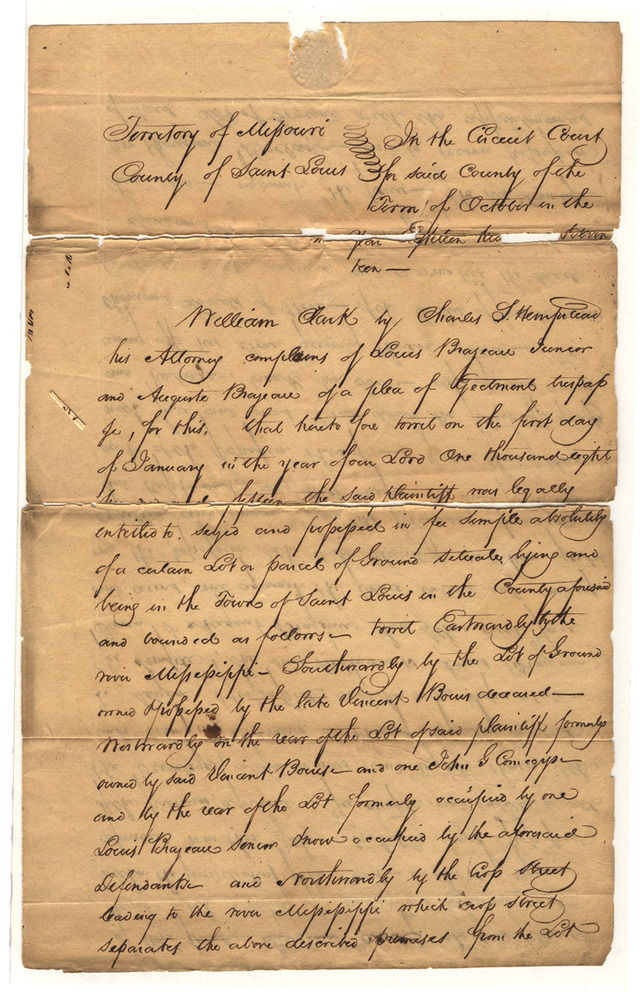 Territory of Missouri
County of Saint Louis
In the Circuit Court
for said County of the
Term of October in the
year Eighteen Seven
teen —
William Clark by Charles S. Hempstead
his Attorney complains of Louis Brazeau Junior
and Auguste Brazeau of a plea of Ejectment trespass
&c, for this, that heretofore towit on the first day
of January in the year of our Lord One thousand eight
fifteen the said plaintiff was legally
entitled to, seized and possessed in fee simple absolutely
of a certain Lot or parcel of Ground situate, lying and
being in the Town of Saint Louis in the County aforesaid
and bounded as follows — towit Eastwardly by the
river Mississippi — Southwardly by the Lot of Ground
owned & possessed by the late Vincent Bouis deceased —
Westwardly on the rear of the Lot of said plaintiff formerly
owned by said Vincent Bouis — and one John G Comegys —
and by the rear of the Lot formerly occupied by one
Louis Brazeau Senior & now occupied by the aforesaid
Defendants — and Northwardly by the Cross Street
leading to the river Mississippi which cross street
separates the above described premises from the Lot